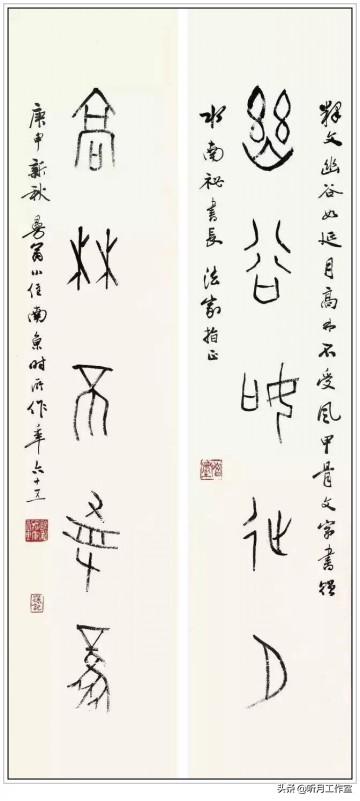 釋文幽谷如延月高林不受風甲骨文字書聯
幽谷如延月
水南祕書長 法家指正
高林不受風
庚申新秋曼翁小住南京时所作年六十五
头条 @听月工作室